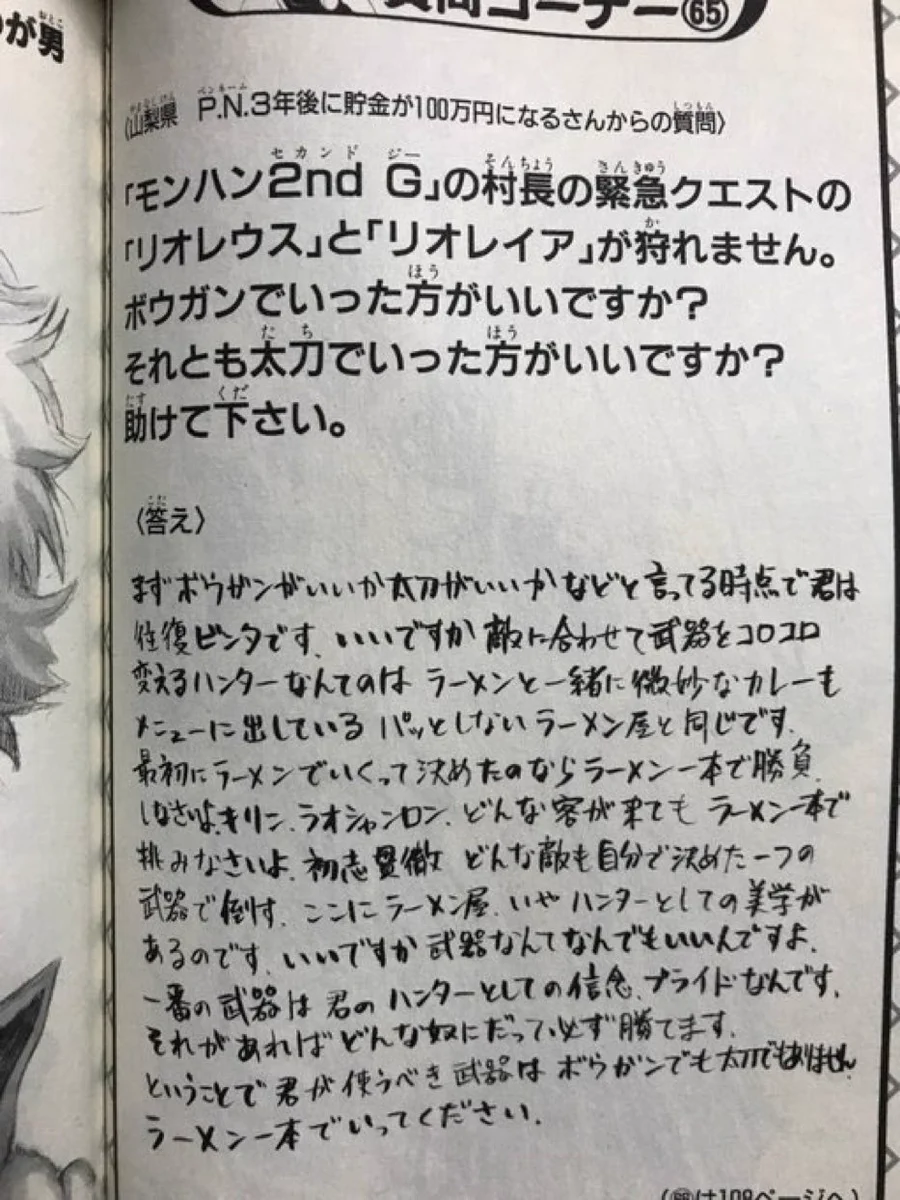 が男
質問コーナー65
〈山梨県 P.N.3年後に貯金が100万円になるさんからの質問〉
「モンハン2nd G」の村長の緊急クエストの
「リオレウス」と「リオレイア」が狩れません。
ボウガンでいった方がいいですか?
それとも太刀でいった方がいいですか?
助けて下さい。
〈答え〉
まずボウガンがいいか太刀がいいかなどと言ってる時点で君は
往復ビンタです。いいですか敵に合わせて武器をコロコロ
変えるハンターなんてのは ラーメンと一緒に微妙なカレーも
メニューに出している パッとしないラーメン屋と同じです。
最初にラーメンでいくって決めたのならラーメン一本で勝負
しなさいよ。キリン、ラオシャンロン、どんな客が来ても ラーメン一本で
挑みなさいよ。初志貫徹 どんな敵も自分で決めた一つの
武器で倒す。ここにラーメン屋、いやハンターとしての美学が
あるのです。いいですか武器なんてなんでもいいんですよ。
一番の武器は君のハンターとしての信念、プライドなんです。
それがあればどんな奴にだって必ず勝てます。
ということで君が使うべき武器はボウガンでも太刀でもありません。
ラーメン一本でいってください。
(66は108ページへ)